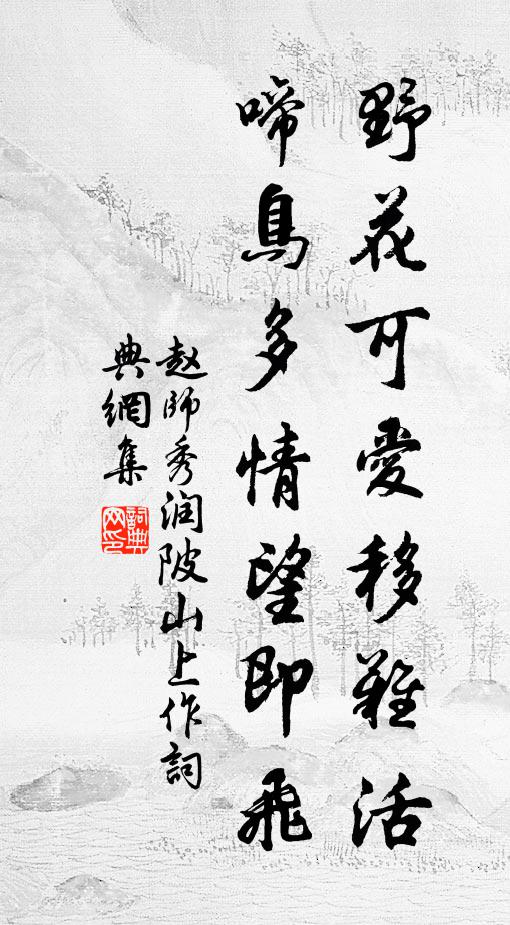 野花可愛移難活
啼鳥多情望即飛
赵師秀润陂山上作詞
典網集
詞典
网印